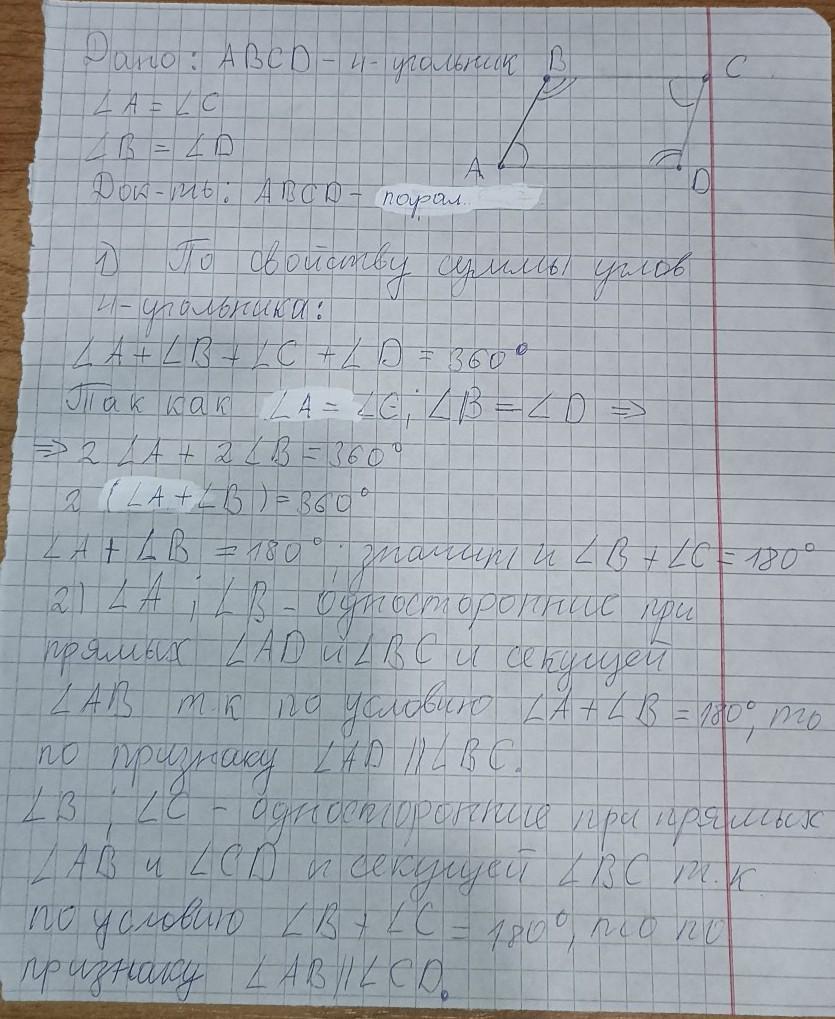 Дано: ABCD - 4-угольник
∠A = ∠C
∠B = ∠D
Док-ть: ABCD - парал..
B
C
A
D
1) По свойству суммы углов
4-угольника:
∠A + ∠B + ∠C + ∠D = 360°
Так как ∠A = ∠C; ∠B = ∠D ⇒
⇒ 2 ∠A + 2 ∠B = 360°
2 (∠A + ∠B) = 360°
∠A + ∠B = 180°; значит и ∠B + ∠C = 180°
2) ∠A; ∠B - односторонние при
прямых ∠AD и ∠BC и секущей
∠AB т.к по условию ∠A + ∠B = 180°, то
по признаку ∠AD || ∠BC.
∠B; ∠C - односторонние при прямых
∠AB и ∠CD и секущей ∠BC т.к
по условию ∠B + ∠C = 180°, то по
признаку ∠AB || ∠CD.